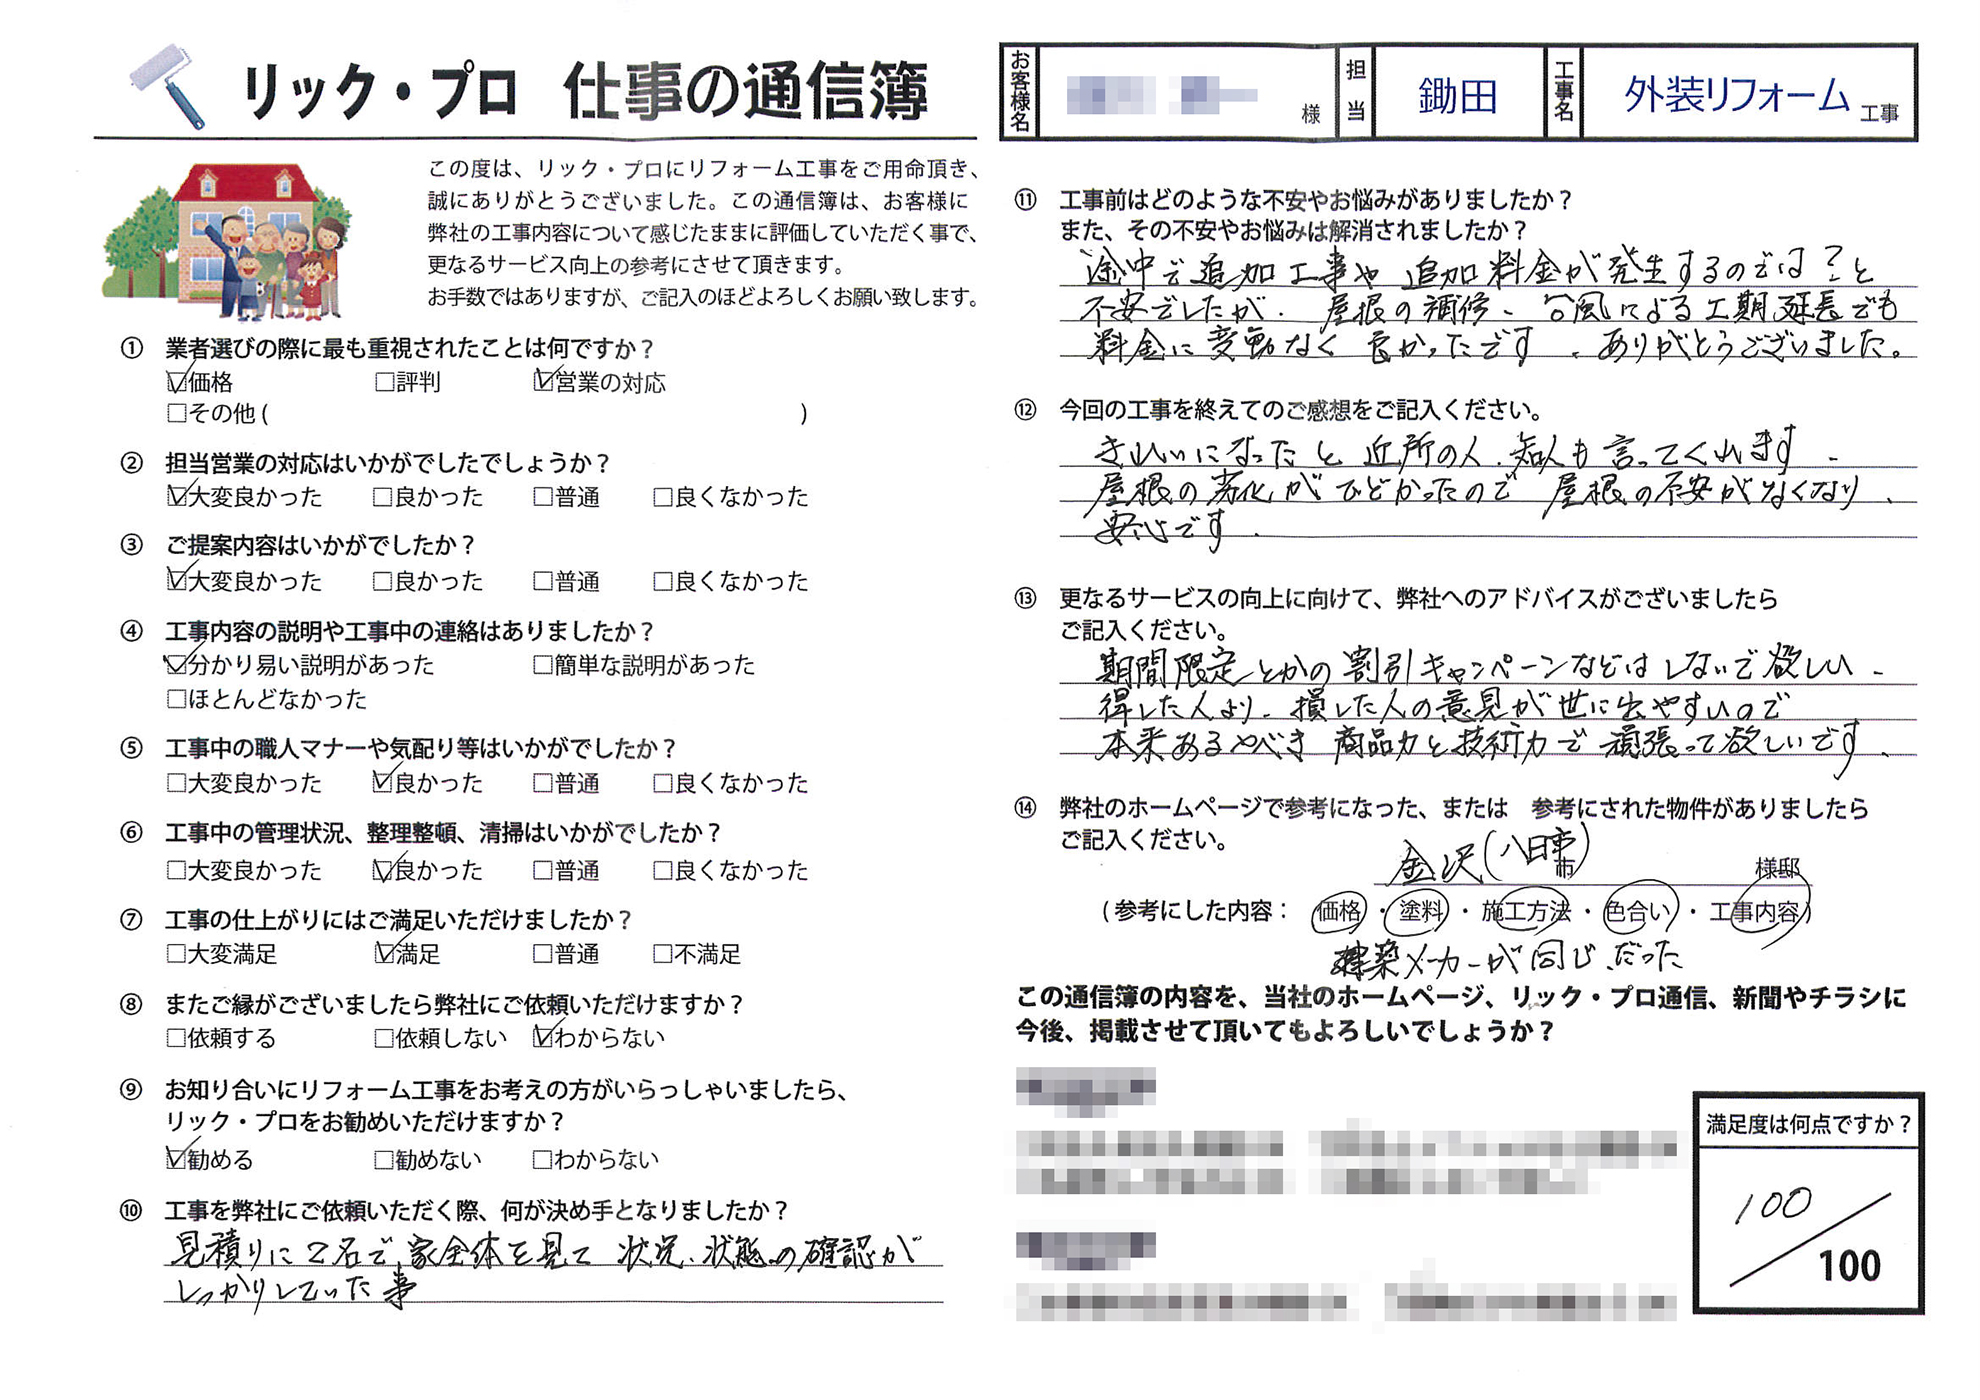 リック・プロ 仕事の通信簿
お客様名 様 担当 鋤田 工事名 外装リフォーム 工事
この度は、リック・プロにリフォーム工事をご用命頂き、
誠にありがとうございました。この通信簿は、お客様に
弊社の工事内容について感じたままに評価していただく事で、
更なるサービス向上の参考にさせて頂きます。
お手数ではありますが、ご記入のほどよろしくお願い致します。
① 業者選びの際に最も重視されたことは何ですか？
☑価格 □評判 ☑営業の対応
□その他 ( )
② 担当営業の対応はいかがでしたでしょうか？
☑大変良かった □良かった □普通 □良くなかった
③ ご提案内容はいかがでしたか？
☑大変良かった □良かった □普通 □良くなかった
④ 工事内容の説明や工事中の連絡はありましたか？
☑分かり易い説明があった □簡単な説明があった
□ほとんどなかった
⑤ 工事中の職人マナーや気配り等はいかがでしたか？
□大変良かった ☑良かった □普通 □良くなかった
⑥ 工事中の管理状況、整理整頓、清掃はいかがでしたか？
□大変良かった ☑良かった □普通 □良くなかった
⑦ 工事の仕上がりにはご満足いただけましたか？
□大変満足 ☑満足 □普通 □不満足
⑧ またご縁がございましたら弊社にご依頼いただけますか？
□依頼する □依頼しない ☑わからない
⑨ お知り合いにリフォーム工事をお考えの方がいらっしゃいましたら、
リック・プロをお勧めいただけますか？
☑勧める □勧めない □わからない
⑩ 工事を弊社にご依頼いただく際、何が決め手となりましたか？
見積りに2名で、家全体を見て 状況、状態の確認が
しっかりしていた事
⑪ 工事前はどのような不安やお悩みがありましたか？
また、その不安やお悩みは解消されましたか？
途中で追加工事や 追加料金が発生するのでは？と
不安でしたが、屋根の補修、台風による工期延長でも
料金に変動なく 良かったです。ありがとうございました。
⑫ 今回の工事を終えてのご感想をご記入ください。
きれいになったと 近所の人、知人も 言ってくれます。
屋根の劣化が ひどかったので 屋根の不安がなくなり、
安心です。
⑬ 更なるサービスの向上に向けて、弊社へのアドバイスがございましたら
ご記入ください。
期間限定とかの割引キャンペーンなどはしないで欲しい。
得した人より、損した人の意見が世に出やすいので
本来あるべき 商品力と技術力で 頑張って欲しいです。
⑭ 弊社のホームページで参考になった、または 参考にされた物件がありましたら
ご記入ください。
金沢(八日市) 市 様邸
( 参考にした内容： 価格 ・ 塗料 ・ 施工方法 ・ 色合い ・ 工事内容 )
建築メーカーが同じだった
この通信簿の内容を、当社のホームページ、リック・プロ通信、新聞やチラシに
今後、掲載させて頂いてもよろしいでしょうか？
満足度は何点ですか？
100
100